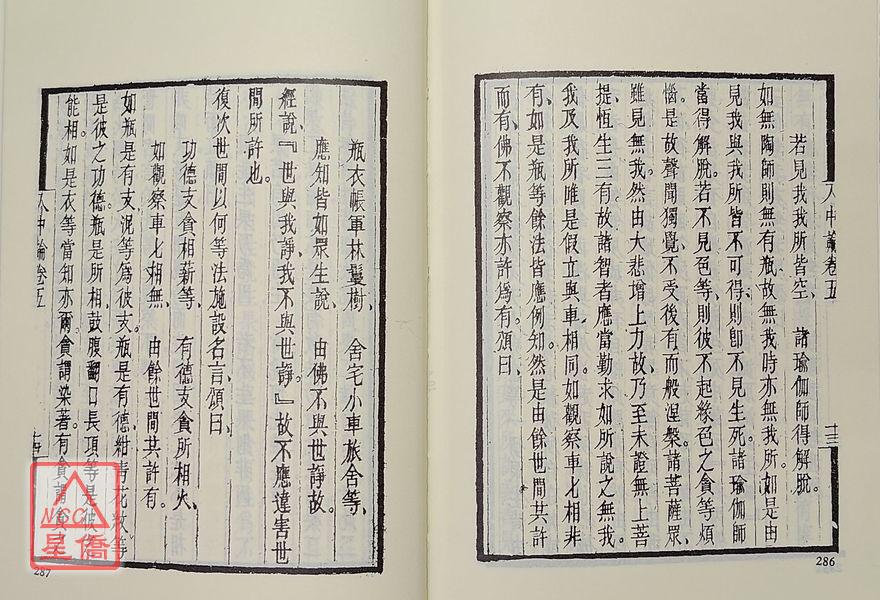 若見我我所皆空、　諸瑜伽師得解脫。
如無陶師則無有瓶、故無我時亦無我所。如是由
見我與我所皆不可得、則卽不見生死。諸瑜伽師
當得解脫。若不見色等、則彼不起緣色之貪等煩
惱。是故聲聞獨覺、不受後有而般涅槃。諸菩薩眾、
雖見無我、然由大悲增上力故、乃至未證無上菩
提、恆生三有。故諸智者應當勤求如所說之無我。
我及我所唯是假立、與車相同。如觀察車七相非
有、如是瓶等餘法皆應例知。然是由餘世間共許
而有、佛不觀察亦許為有。頌曰、
入中論卷五
十三
286
瓶衣帳軍林鬘樹、　舍宅小車旅舍等、
應知皆如眾生說、　由佛不與世諍故。
經說、『世與我諍、我不與世諍。』故不應違害世
間所許也。
復次世間以何等法施設名言、頌曰、
功德支貪相薪等、　有德支貪所相火、
如觀察車七相無、　由餘世間共許有。
如瓶是有支、泥等為彼支。瓶是有德、紺青花紋等
是彼之功德。瓶是所相、鼓腹翻口長項等是彼
能相。如是衣等當知亦爾。貪謂染著。有貪謂貪
入中論卷五
十四
287
NCC
星僑